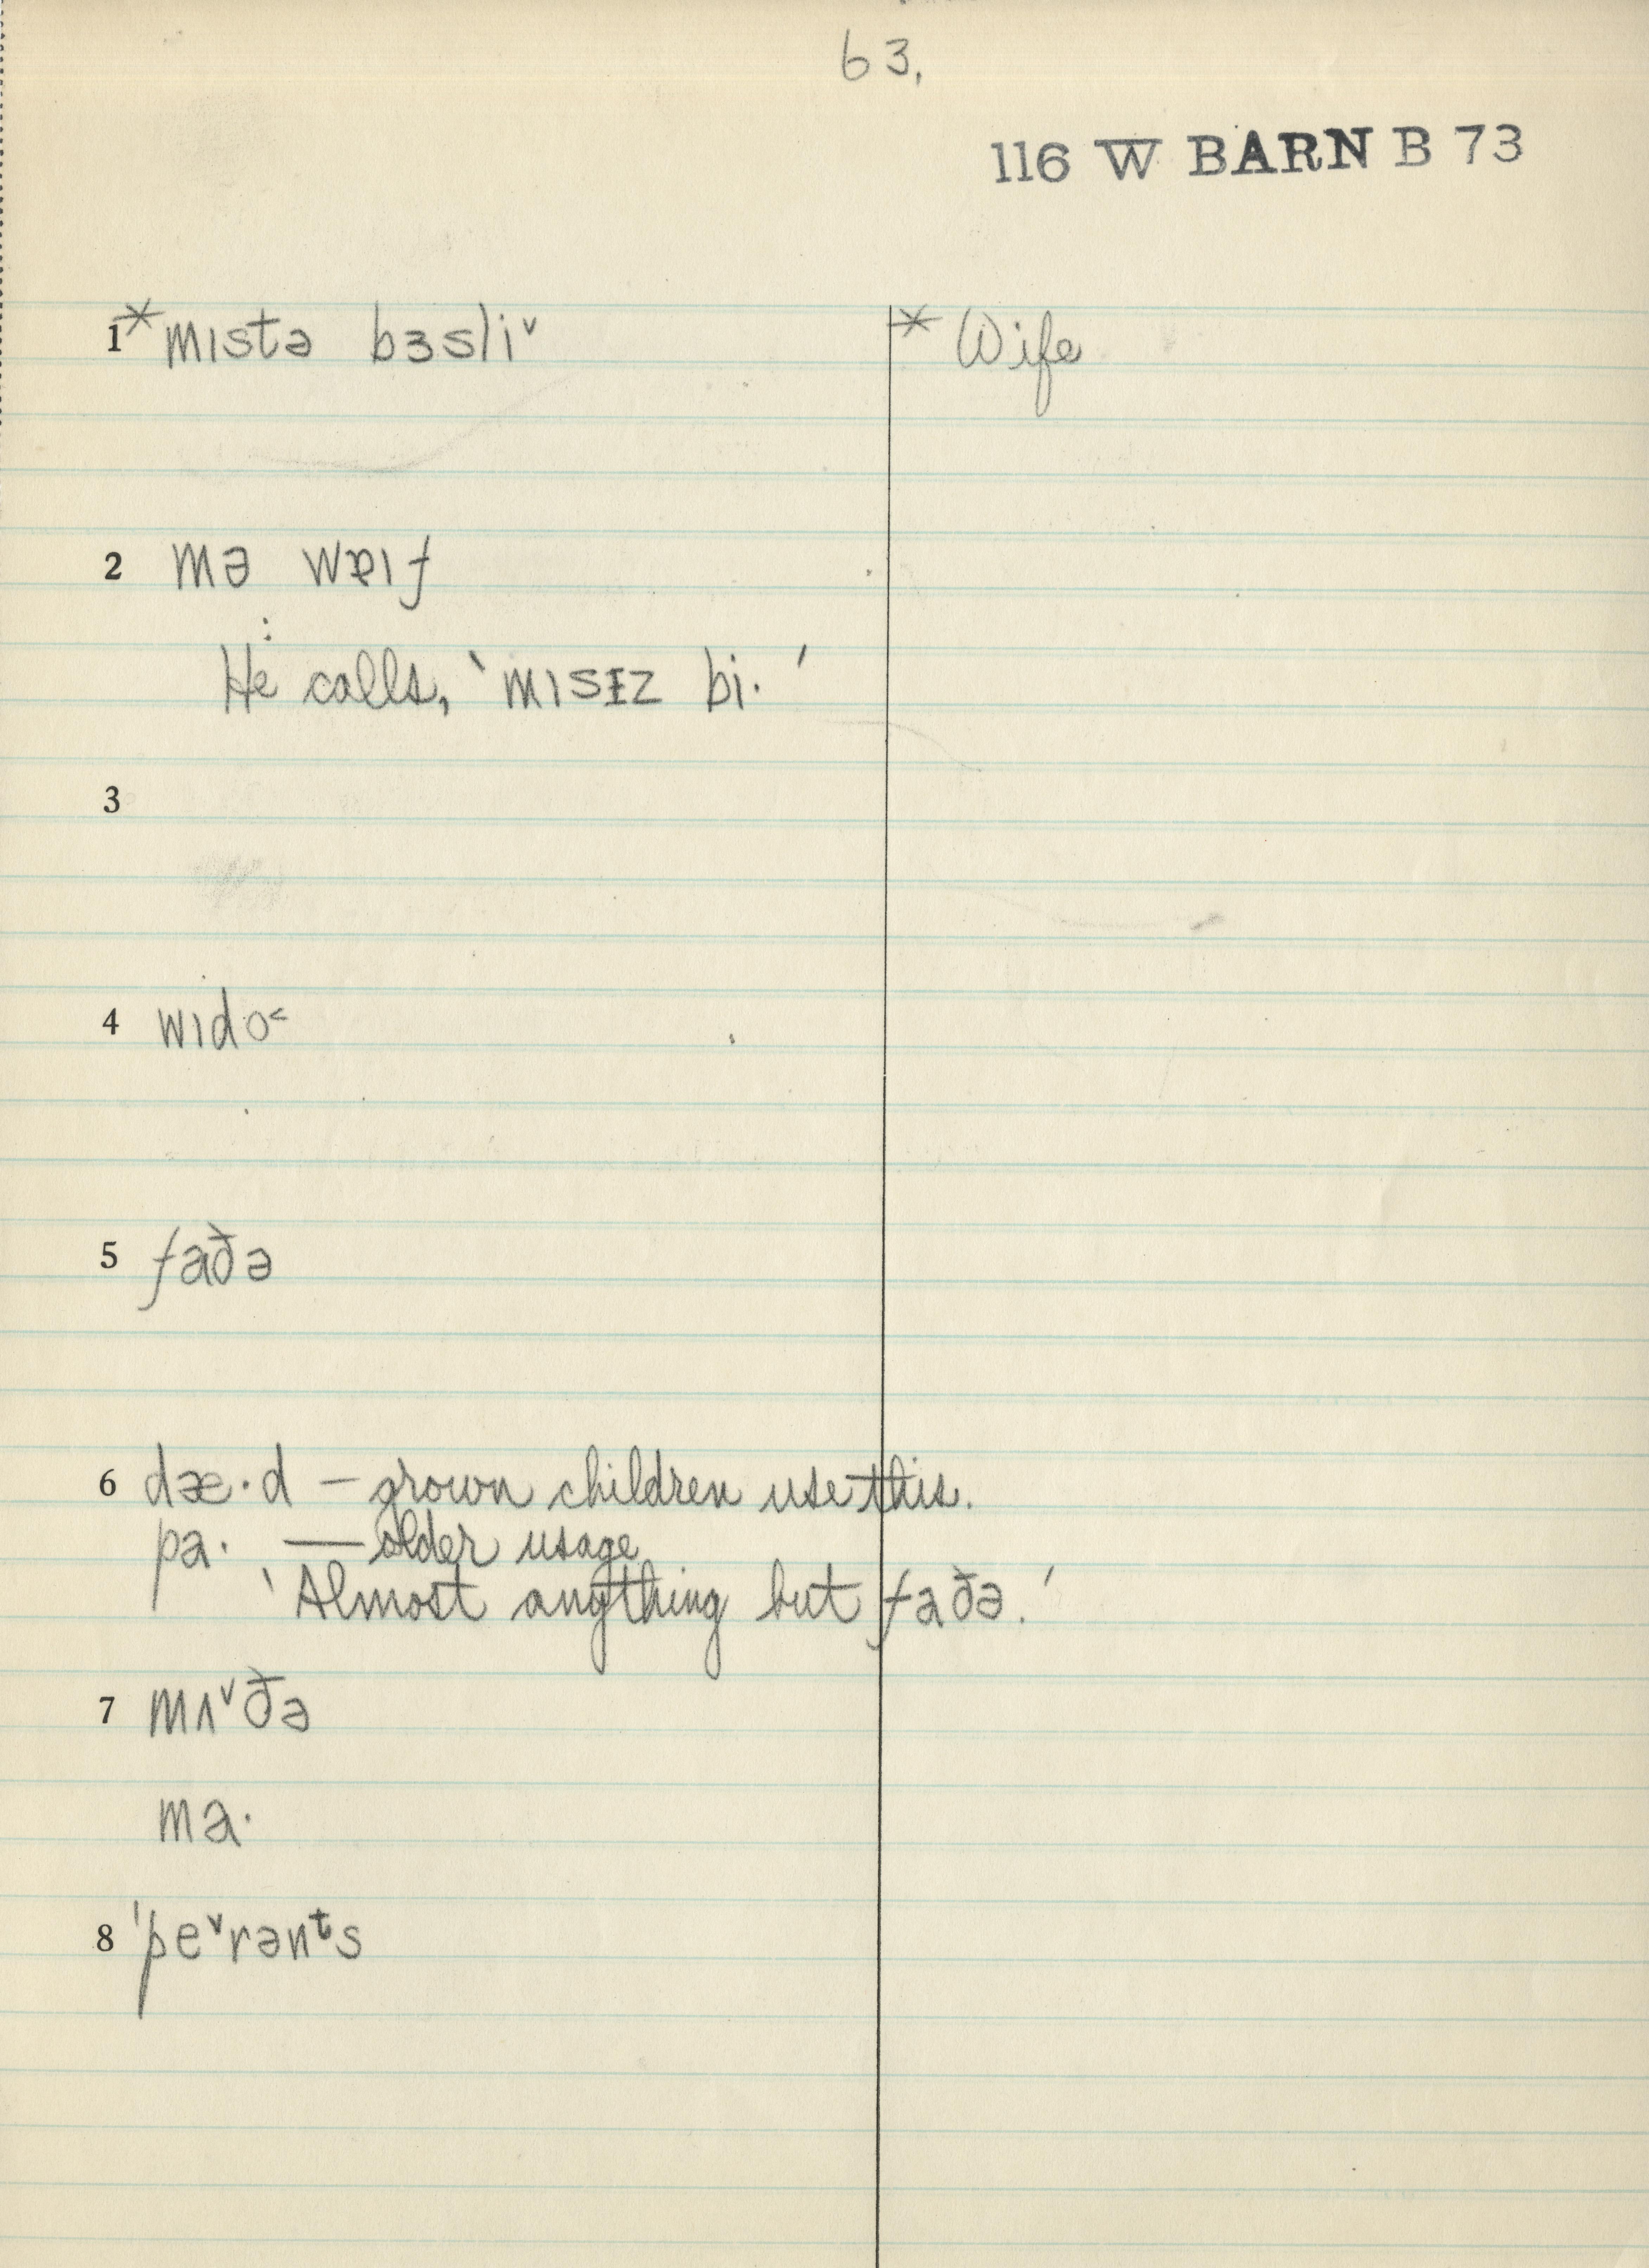 63.
116 W BARN B 73
1 *mɪstə bɜsliˇ
* Wife
2 mə wɐɪf
: He calls, ‵mɪsᵻz bi· ′
3
4 wɪdo˂
5 faðə
6 dæ·d – grown children use this.
pa· — older usage
‵Almost anything but faðə.′
7 mʌˇðə
ma·
8 ˈpeˇrənᵗs